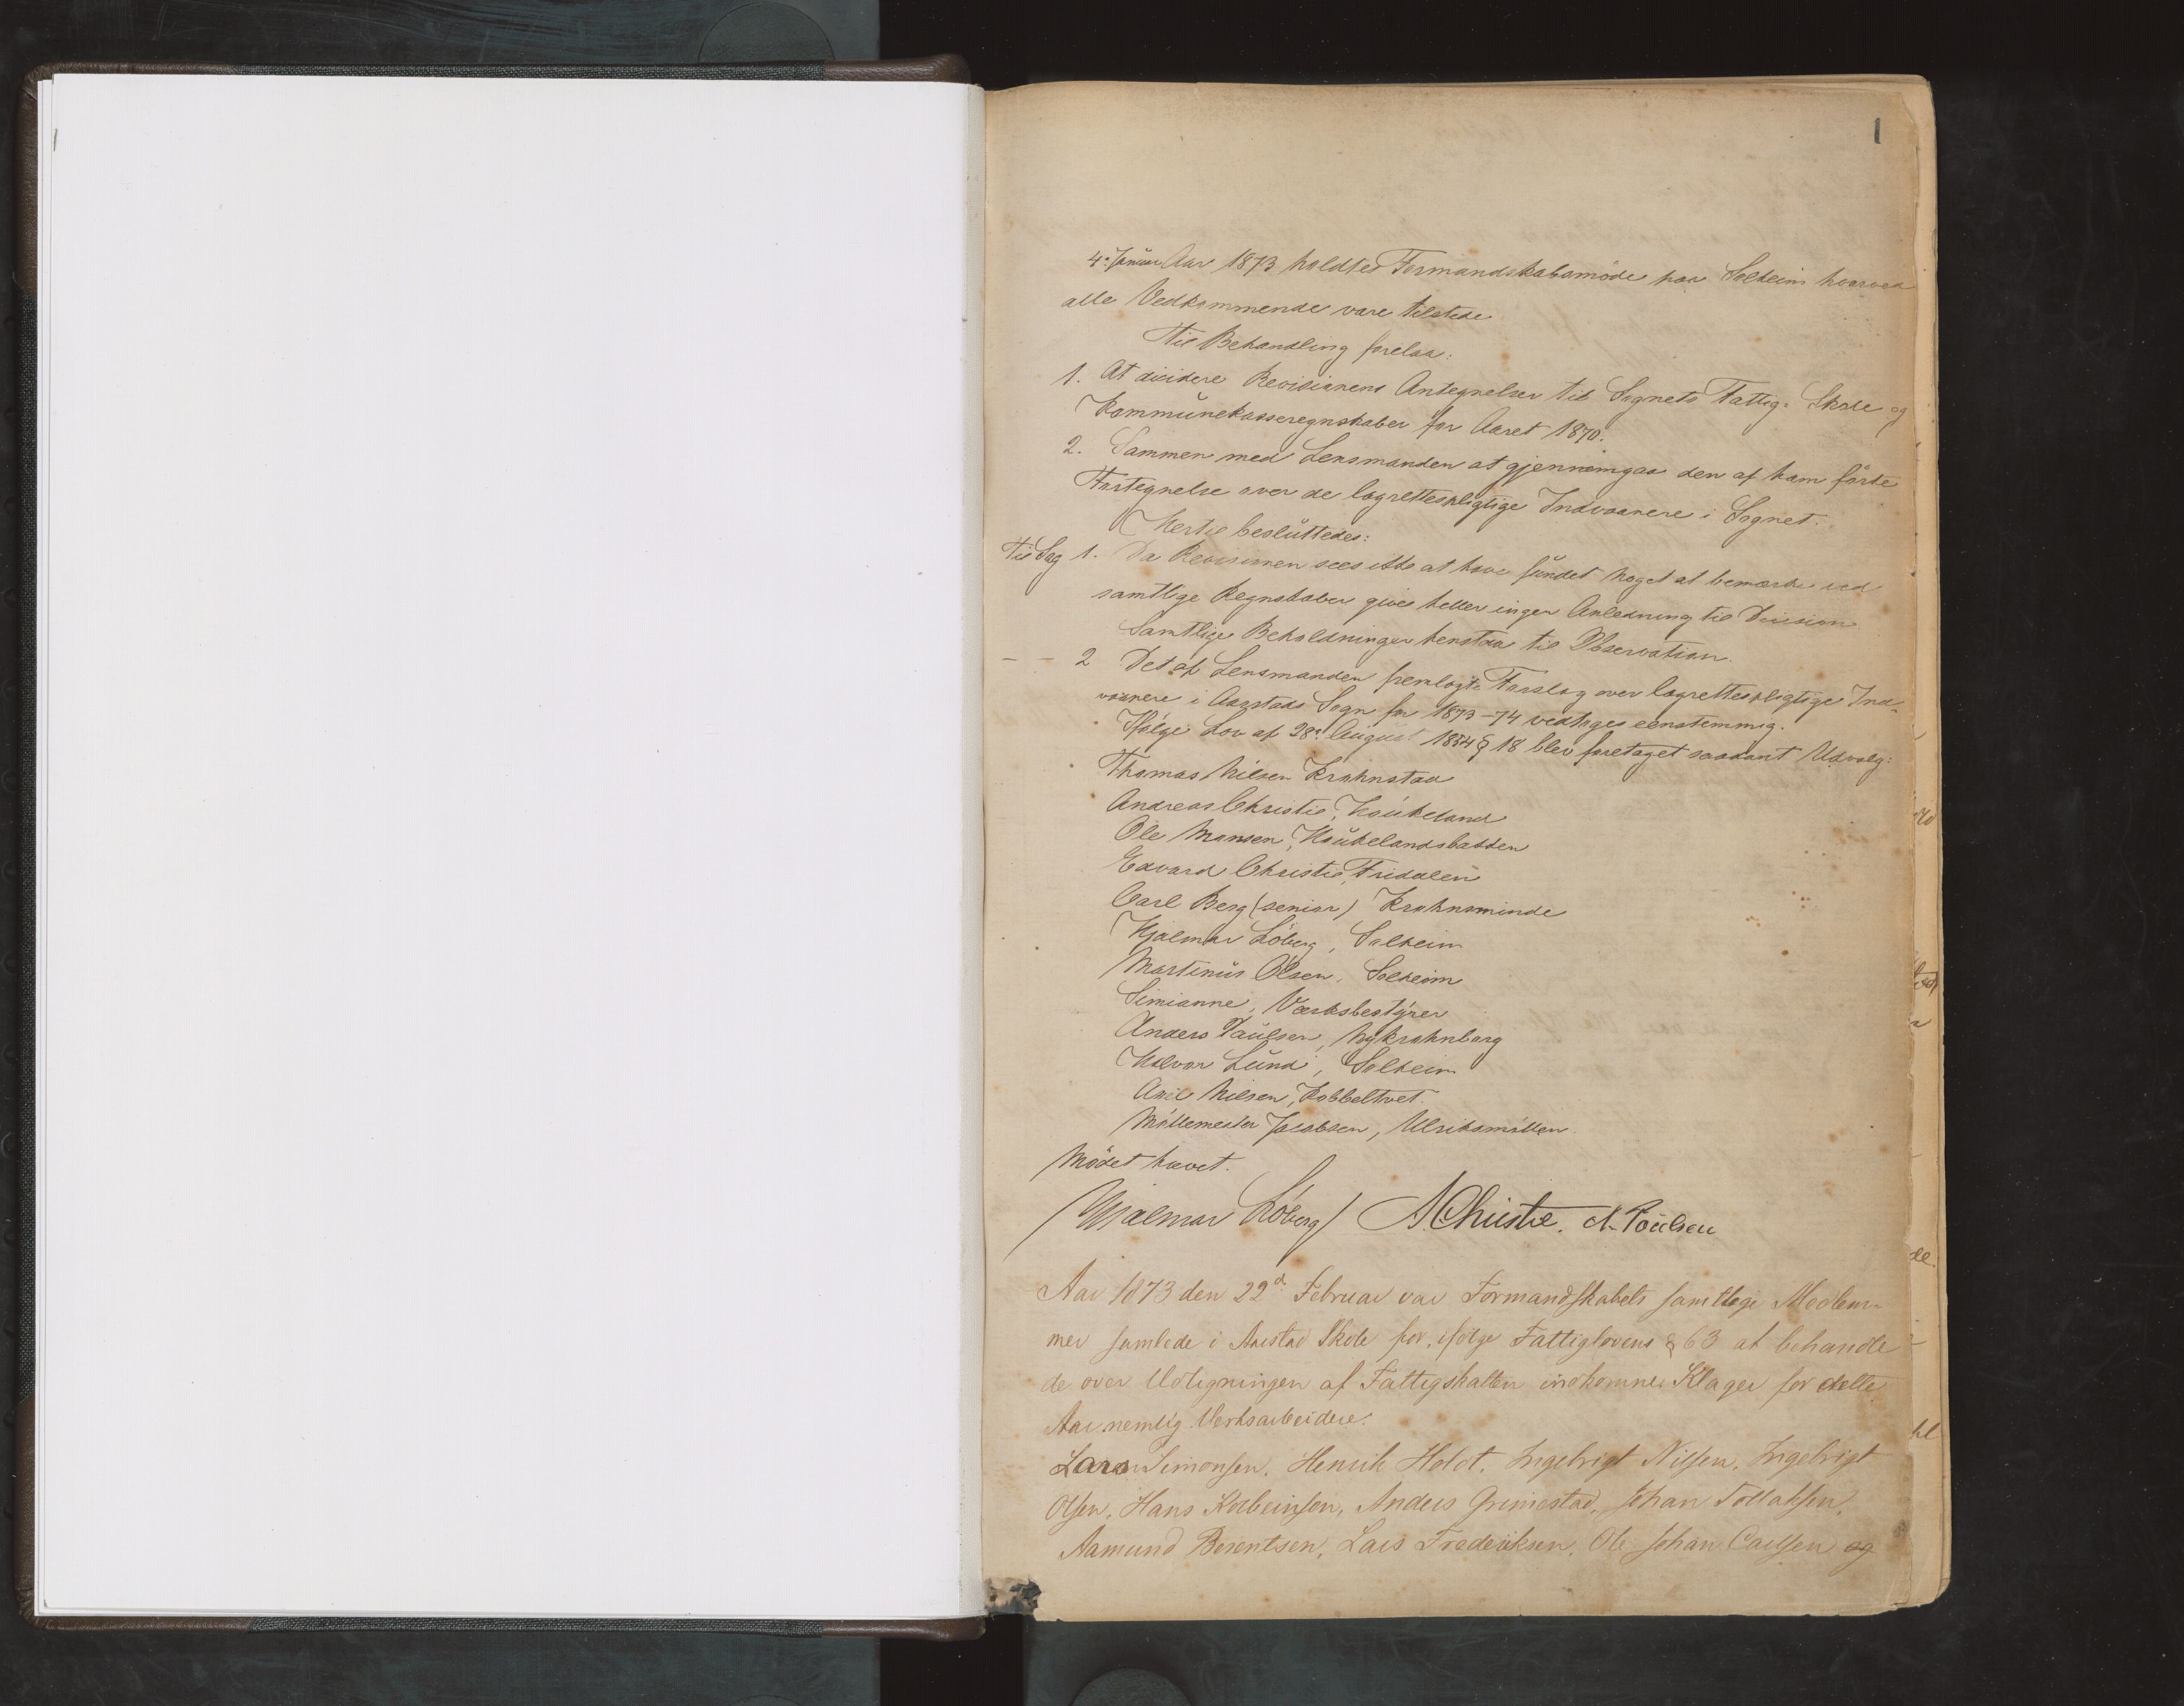 1
4de Januar Aar 1873 holdtes Formandskabsmöde paa Solheim hvorved
alle Vedkommende vare tilstede
Til Behandling forelaa:
1. At dicidere Revisionens Antegnelser til Sognets Fattig- Skole og
Kommünekasseregnskaber for Aaret 1870.
2. Sammen med Lensmanden at gjennemgaa den af ham förte
Fortegnelse over de lagrettespligtige Indvaanere i Sognet.
Hertil beslüttedes:
Til Sag 1. Da Revisionen sees ikke at have fündet noget at bemærke ved
samtlige Regnskaber gives heller ingen Anledning til Decision.
Samtlige Beholdninger henstaa til Observation.
— — 2 Det af Lensmanden fremlagte Forslag over lagrettespligtige Ind-
vaanere i Aarstads Sogn for 1873-74 vedtages eenstemmig.
Ifölge Lov af 28de August 1854 § 18 blev foretaget saadant Udvalg:
Thomas Nilsen Krohnstad
Andreas Christie, Haükeland
Ole Monsen, Haükelandsbakken
Edvard Christie, Fridalen
Carl Berg (senior) Krohnsminde
Hjalmar Löberg, Solheim
Martinüs Olsen, Solheim
Simianne, Værksbestyrer
Anders Paülsen, Nykrohnborg
Halvor Lünd, Solheim
Axel Nilsen, Kobbeltvet.
Möllemester Jacobsen, Ulriksmöllen.
Mödet hævet.
/Hjalmar Löberg/ A. Christie. A. Poulsen
Aar 1873 den 22d Februar var Formandskabets samtlige Medlem-
mer samlede i Aarstad Skole for, ifølge Fattiglovens § 63 at behandle
de over Udligningen af Fattigskatten indkomne Klager for dette
Aar nemlig Verksarbeidere:
Lars Simonsen, Henrik Holdt, Ingebrigt Nilsen, Ingebrigt
Olsen, Hans Kolbeinsen, Anders Grimestad, Johan Tollaksen,
Aamund Berentsen, Lars Frederiksen, Ole Johan Carlsen og